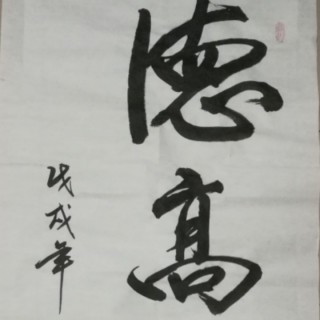 德高
戊戌年